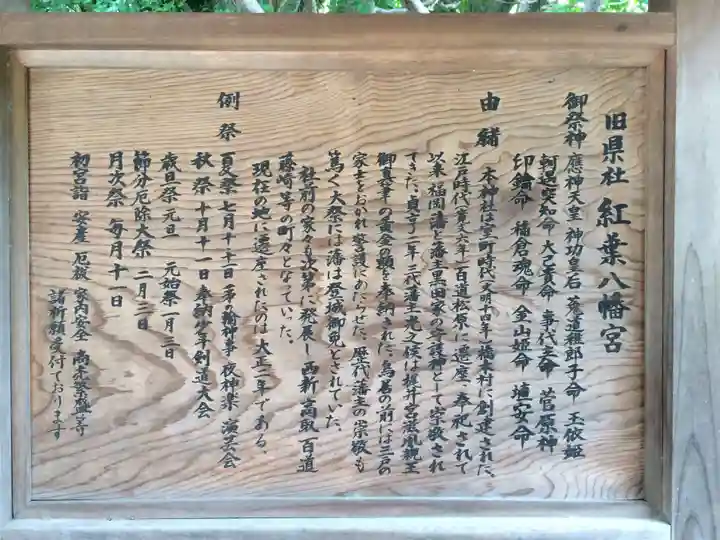 旧県社 紅葉八幡宮
御祭神 應神天皇 神功皇后 菟道稚郎子命 玉依姫
軻遇突知命 大己貴命 事代主命 菅原神
印鑰命 稲倉魂命 金山姫命 埴安命
由緒 本神社は室町時代(文明十四年)橋本村に創建された、
江戸時代(寛文六年)百道松原に遷座、奉祀されて
以来福岡藩々藩主黒田家の守護神として崇敬され
てきた、貞享二年三代藩主光之候は梶井宮盛胤親王
御真筆の黄金の額を奉納された、鳥居の前には三戸の
家士をおかれ警護にあたらせた、歴代藩主の崇敬も
篤く大祭には藩は登城御免とされていた、
社前の家々も次第に発展し西新 高取 百道
藤崎 等の町々となっていった、
現在の地に遷座されたのは大正二年である、
例祭
夏祭 七月十一日 茅の輪神事 夜神楽 演芸会
秋祭 十月十一日 奉納少年剣道大会
歳旦祭 元旦 元始祭 一月三日
節分厄除大祭 二月三日
月次祭 毎月十一日
初宮詣 安産 厄祓 家内安全 商売繁盛 等
諸祈願受付ております